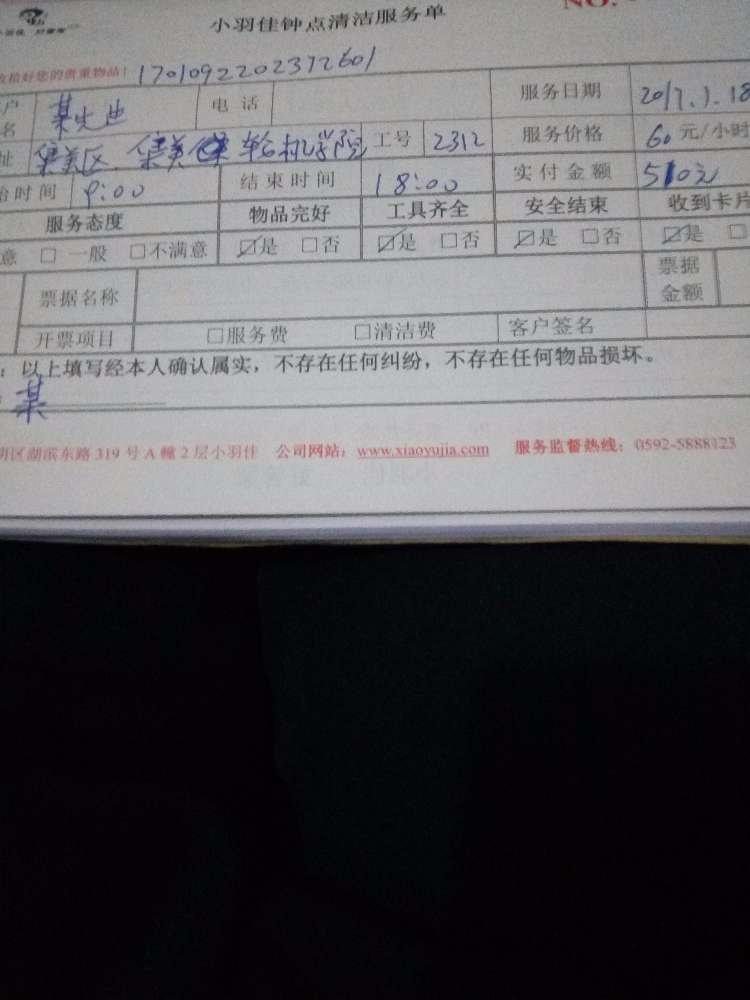 小羽佳钟点清洁服务单
NO.
收拾好您的贵重物品！1701092202372601
户 电话 服务日期 2017.1.18
名 某先生
址 集美区 集美 轮机学院 工号 2312 服务价格 60元/小时
始时间 9:00 结束时间 18:00 实付金额 510元
服务态度 物品完好 工具齐全 安全结束 收到卡片
意 □ 一般 □不满意 ☑是 □否 ☑是 □否 ☑是 □否 ☑是 □
票据名称 票据金额
开票项目 □服务费 □清洁费 客户签名
：以上填写经本人确认属实，不存在任何纠纷，不存在任何物品损坏。
某
明区湖滨东路 319 号 A 幢 2 层小羽佳 公司网站：www.xiaoyujia.com 服务监督热线：0592-5888123